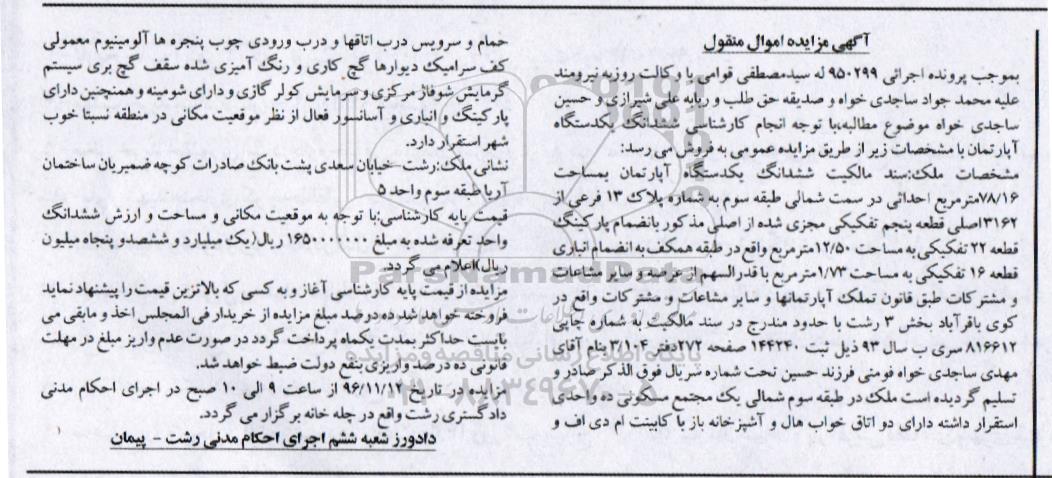 آگهی مزایده اموال منقول
بموجب پرونده اجرائی ۹۵۰۲۹۹ له سیدمصطفی قوامی با وکالت روزبه نیرومند
علیه محمد جواد ساجدی خواه و صدیقه حق طلب و ربابه علی شیرازی و حسین
ساجدی خواه موضوع مطالبه،با توجه انجام کارشناسی ششدانگ یکدستگاه
آپارتمان با مشخصات زیر از طریق مزایده عمومی به فروش می رسد:
مشخصات ملک:سند مالکیت ششدانگ یکدستگاه آپارتمان بمساحت
۷۸/۱۶مترمربع احداثی در سمت شمالی طبقه سوم به شماره پلاک ۱۳ فرعی از
۳۱۶۲اصلی قطعه پنجم تفکیکی مجزی شده از اصلی مذکور بانضمام پارکینگ
قطعه ۲۲ تفکیکی به مساحت ۱۲/۵۰مترمربع واقع در طبقه همکف به انضمام انباری
قطعه ۱۶ تفکیکی به مساحت ۱/۷۳ متر مربع با قدرالسهم از عرصه و سایر مشاعات
و مشترکات طبق قانون تملک آپارتمانها و سایر مشاعات و مشترکات واقع در
کوی باقرآباد بخش ۳ رشت با حدود مندرج در سند مالکیت به شماره چاپی
۸۱۶۶۱۲ سری ب سال ۹۳ ذیل ثبت ۱۴۴۲۴۰ صفحه ۲۷۲دفتر ۳/۱۰۴بنام آقای
مهدی ساجدی خواه فومنی فرزند حسین تحت شماره سریال فوق الذکر صادر و
تسلیم گردیده است ملک در طبقه سوم شمالی یک مجتمع مسکونی ده واحدی
استقرار داشته دارای دو اتاق خواب هال و آشپزخانه باز با کابینت ام دی اف و
حمام و سرویس درب اتاقها و درب ورودی چوب پنجره ها آلومینیوم معمولی
کف سرامیک دیوارها گچ کاری و رنگ آمیزی شده سقف گچ بری سیستم
گرمایش شوفاژ مرکزی و سرمایش کولر گازی و دارای شومینه و همچنین دارای
پارکینگ و انباری و آسانسور فعال از نظر موقعیت مکانی در منطقه نسبتا خوب
شهر استقرار دارد.
نشانی ملک:رشت خیابان سعدی پشت بانک صادرات کوچه ضمیریان ساختمان
آریا طبقه سوم واحد ۵
قیمت پایه کارشناسی:با توجه به موقعیت مکانی و مساحت و ارزش ششدانگ
واحد تعرفه شده به مبلغ ۱۶۵۰۰۰۰۰۰۰ ریال(یک میلیارد و ششصدو پنجاه میلیون
ریال)اعلام می گردد.
مزایده از قیمت پایه کارشناسی آغاز و به کسی که بالاترین قیمت را پیشنهاد نماید
فروخته خواهد شد ده درصد مبلغ مزایده از خریدار فی المجلس اخذ و مابقی می
بایست حداکثر بمدت یکماه پرداخت گردد در صورت عدم واریز مبلغ در مهلت
قانونی ده درصد واریزی بنفع دولت ضبط خواهد شد.
مزایده در تاریخ ۹۶/۱۱/۱۲ از ساعت ۹ الی ۱۰ صبح در اجرای احکام مدنی
دادگستری رشت واقع در چله خانه برگزار می گردد.
دادورز شعبه ششم اجرای احکام مدنی رشت - پیمان
ParsNamadData
پایگاه اطلاع رسانی مناقصه و مزایده
۰۲۱-۸۸۳۴۹۶۷۰-۵